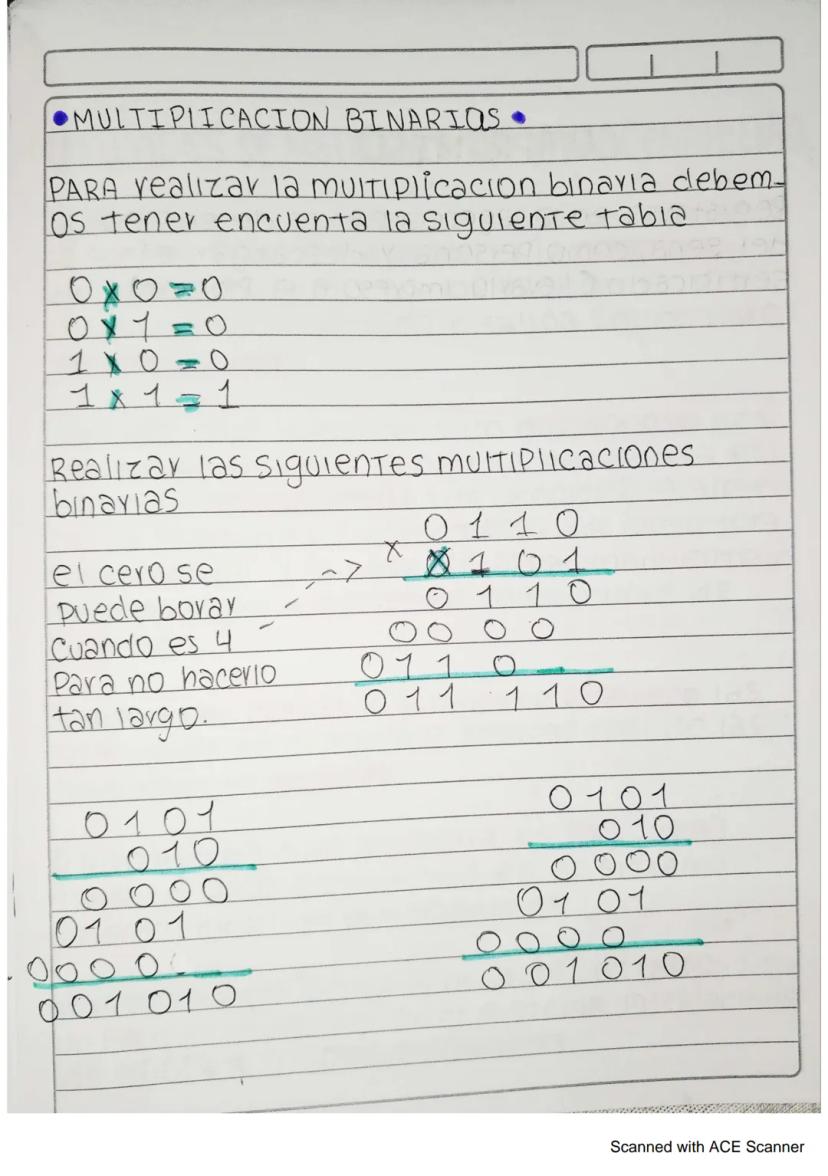 •MULTIPLICACION BINARIOS•
PARA realizar la multiplicacion binaria debem-
os tener encuenta la siguiente tabla
0 x 0 = 0
0 x 1 = 0
1 x 0 = 0
1 x 1 = 1
Realizar las siguientes multiplicaciones
binarias
0 1 1 0
x 0 1 0 1
el cero se -->
puede borar 0 1 1 0
cuando es 4 0 0 0 0
Para no hacerlo 0 1 1 0
tan largo. 0 1 1 1 1 0
0 1 0 1
0 1 0
0 0 0 0
0 1 0 1
0 0 0 0
0 0 1 0 1 0
0 1 0 1
0 1 0
0 0 0 0
0 1 0 1
0 0 0 0
0 0 1 0 1 0
Scanned with ACE Scanner